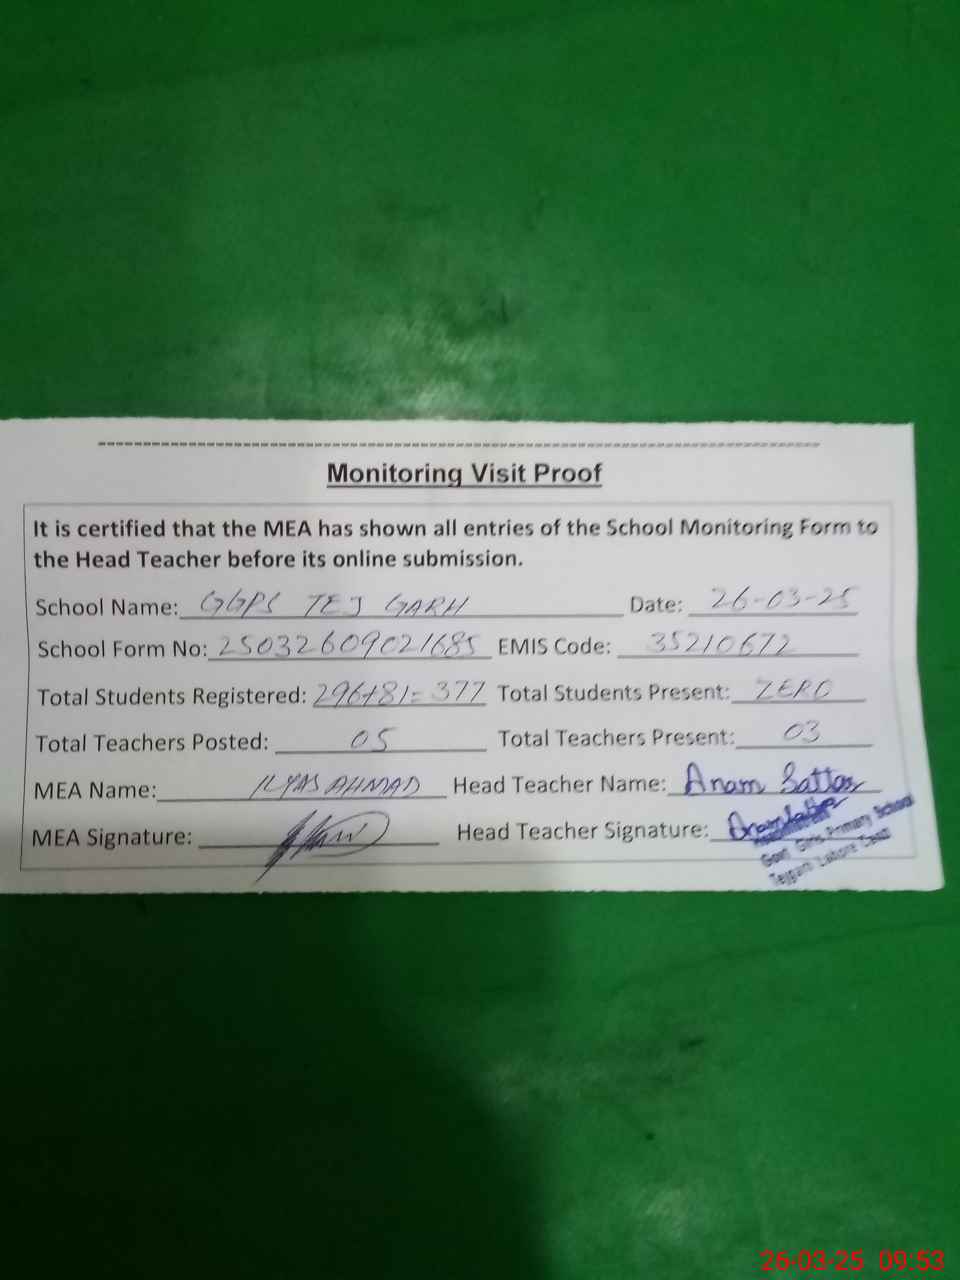 Monitoring Visit Proof
It is certified that the MEA has shown all entries of the School Monitoring Form to
the Head Teacher before its online submission.
School Name: GGPS TEJ GARH Date: 26-03-25
School Form No: 25032609021685 EMIS Code: 35210672
Total Students Registered: 296+81=377 Total Students Present: ZERO
Total Teachers Posted: 05 Total Teachers Present: 03
MEA Name: ILYAS AHMAD Head Teacher Name: Anam Sattar
MEA Signature: Head Teacher Signature:
Govt Girls Primary School
Tejgarh Lahore Cantt
26-03-25 09:53